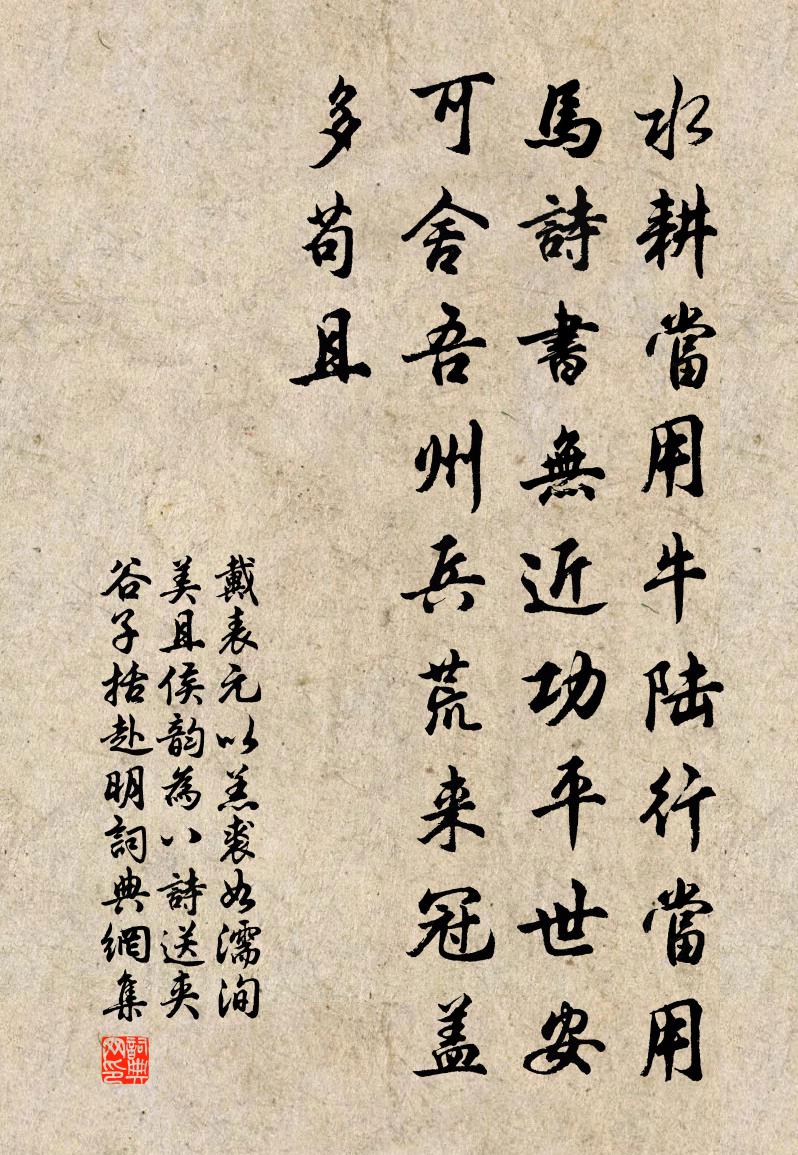 水耕當用牛陆行當用
馬詩書無近功平世安
可舍吾州兵荒来冠盖
多苟且
戴表元以羔裘如濡洵
美且侯韵為八詩送夹
谷子括赴明詞典網集
詞典网印